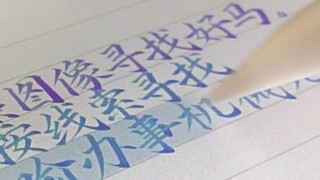 图像寻找好马。
按线索寻找
办事机械